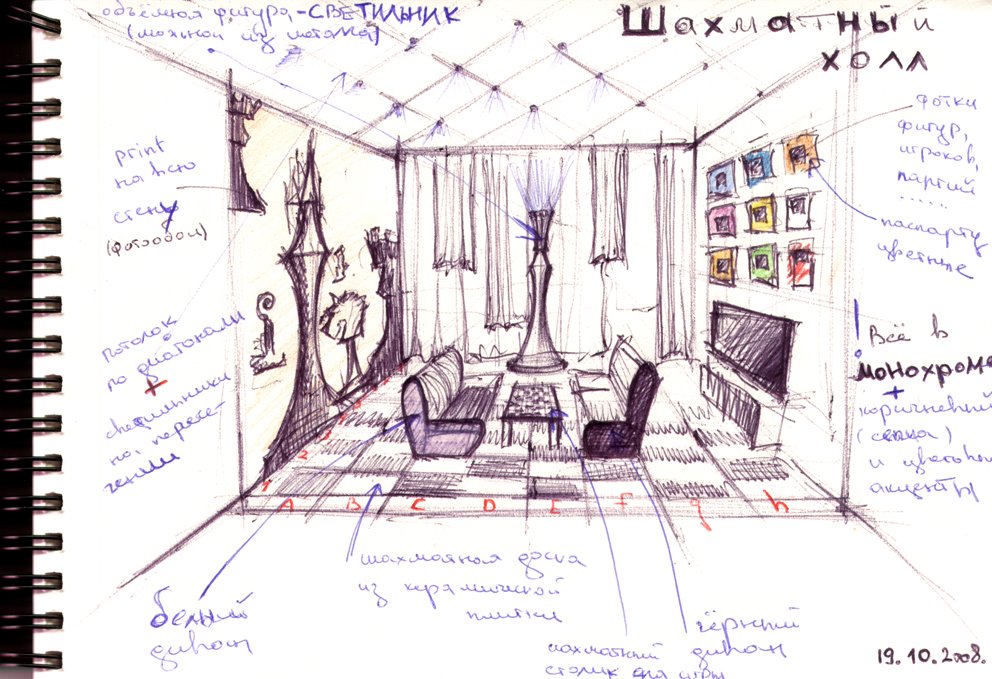 объёмная фигура-СВЕТИЛЬНИК
(можной из металла)
Шахматный
холл
фотки
фигур,
игроков,
партий
.....
паспарту
цветные
print
на всю
стену
(фотообои)
потолок
по диагонали
+
светильники
на пересе-
чении
!
Всё в
монохроме
+
коричневый
(сепия)
и цветовой
акценты
1
2
3
A
B
C
D
E
f
g
h
шахматная доска
из керамической
плитки
белый
диван
чёрный
диван
шахматный
столик для игры
19.10.2008.